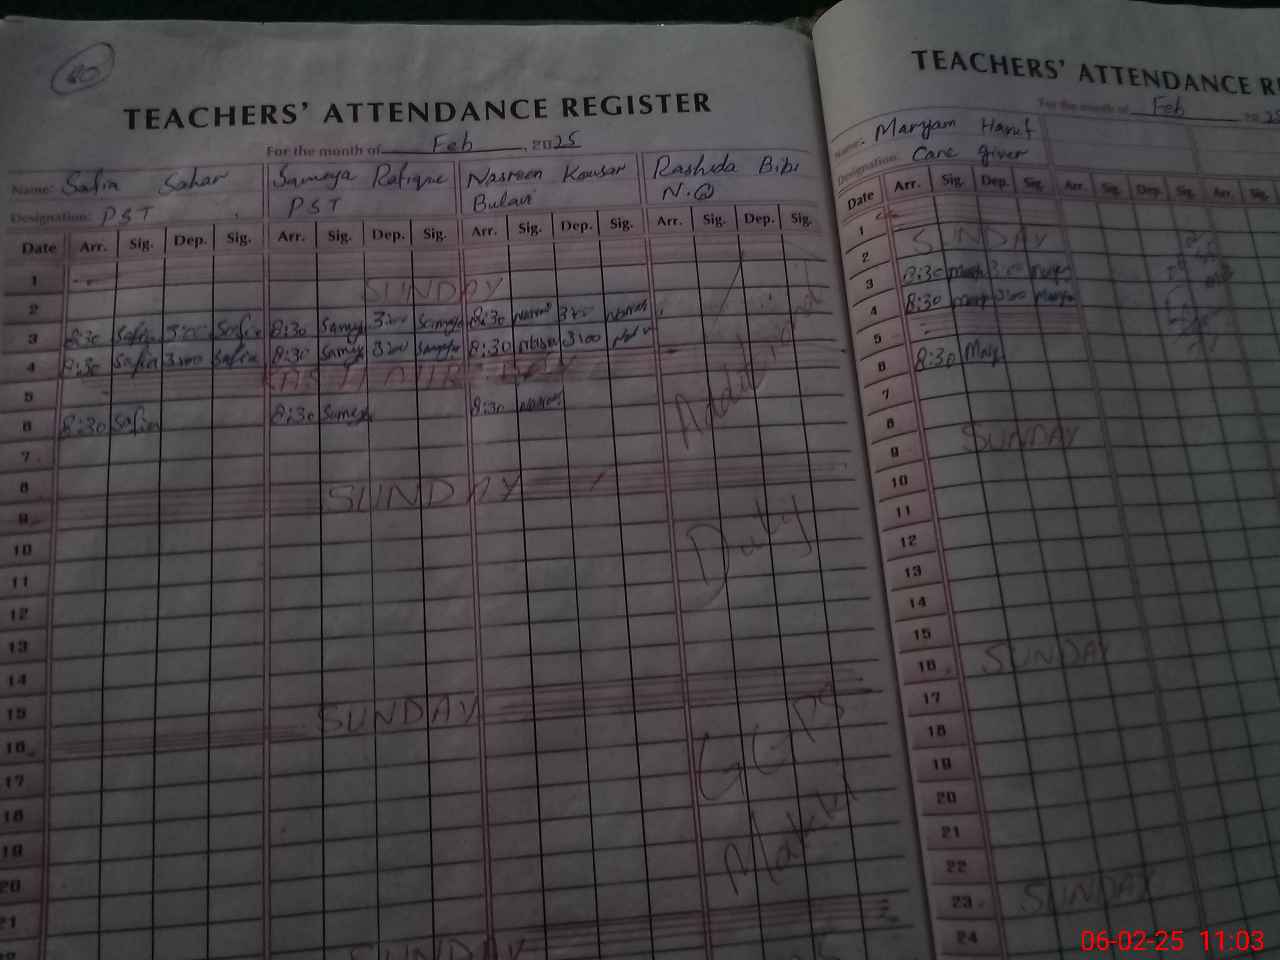 40
TEACHERS' ATTENDANCE REGISTER
For the month of Feb, 2025
Name: Safia Sahar Sameya Rafique Nasreen Kousar Rashida Bibi
Designation: PST PST Bulavi N.Q
Date Arr. Sig. Dep. Sig. Arr. Sig. Dep. Sig. Arr. Sig. Dep. Sig. Arr. Sig. Dep. Sig.
1
2 SUNDAY
3 8:30 Safia 3:00 Safia 8:30 Samey 3:00 Samey 8:30 3:00
4 8:30 Safia 3:00 Safia 8:30 Samey 3:00 8:30 3:00
5 KASHMIR DAY
6 8:30 Safia 8:30 Samey 8:30
7
8
9 SUNDAY
10
11
12
13
14
15
16 SUNDAY
17
18
19
20
21
SUNDAY
Additional
Duty
GGPS
TEACHERS' ATTENDANCE RE
For the month of Feb 2025
Name: Maryam Hanif
Designation: Care giver
Date Arr. Sig. Dep. Sig. Arr. Sig. Dep. Sig. Arr. Sig.
1
2 SUNDAY
3 8:30 3:00
4 8:30 3:00
5
6 8:30 Mary
7
8
9 SUNDAY
10
11
12
13
14
15
16 SUNDAY
17
18
19
20
21
22
23 SUNDAY
24
06-02-25 11:03